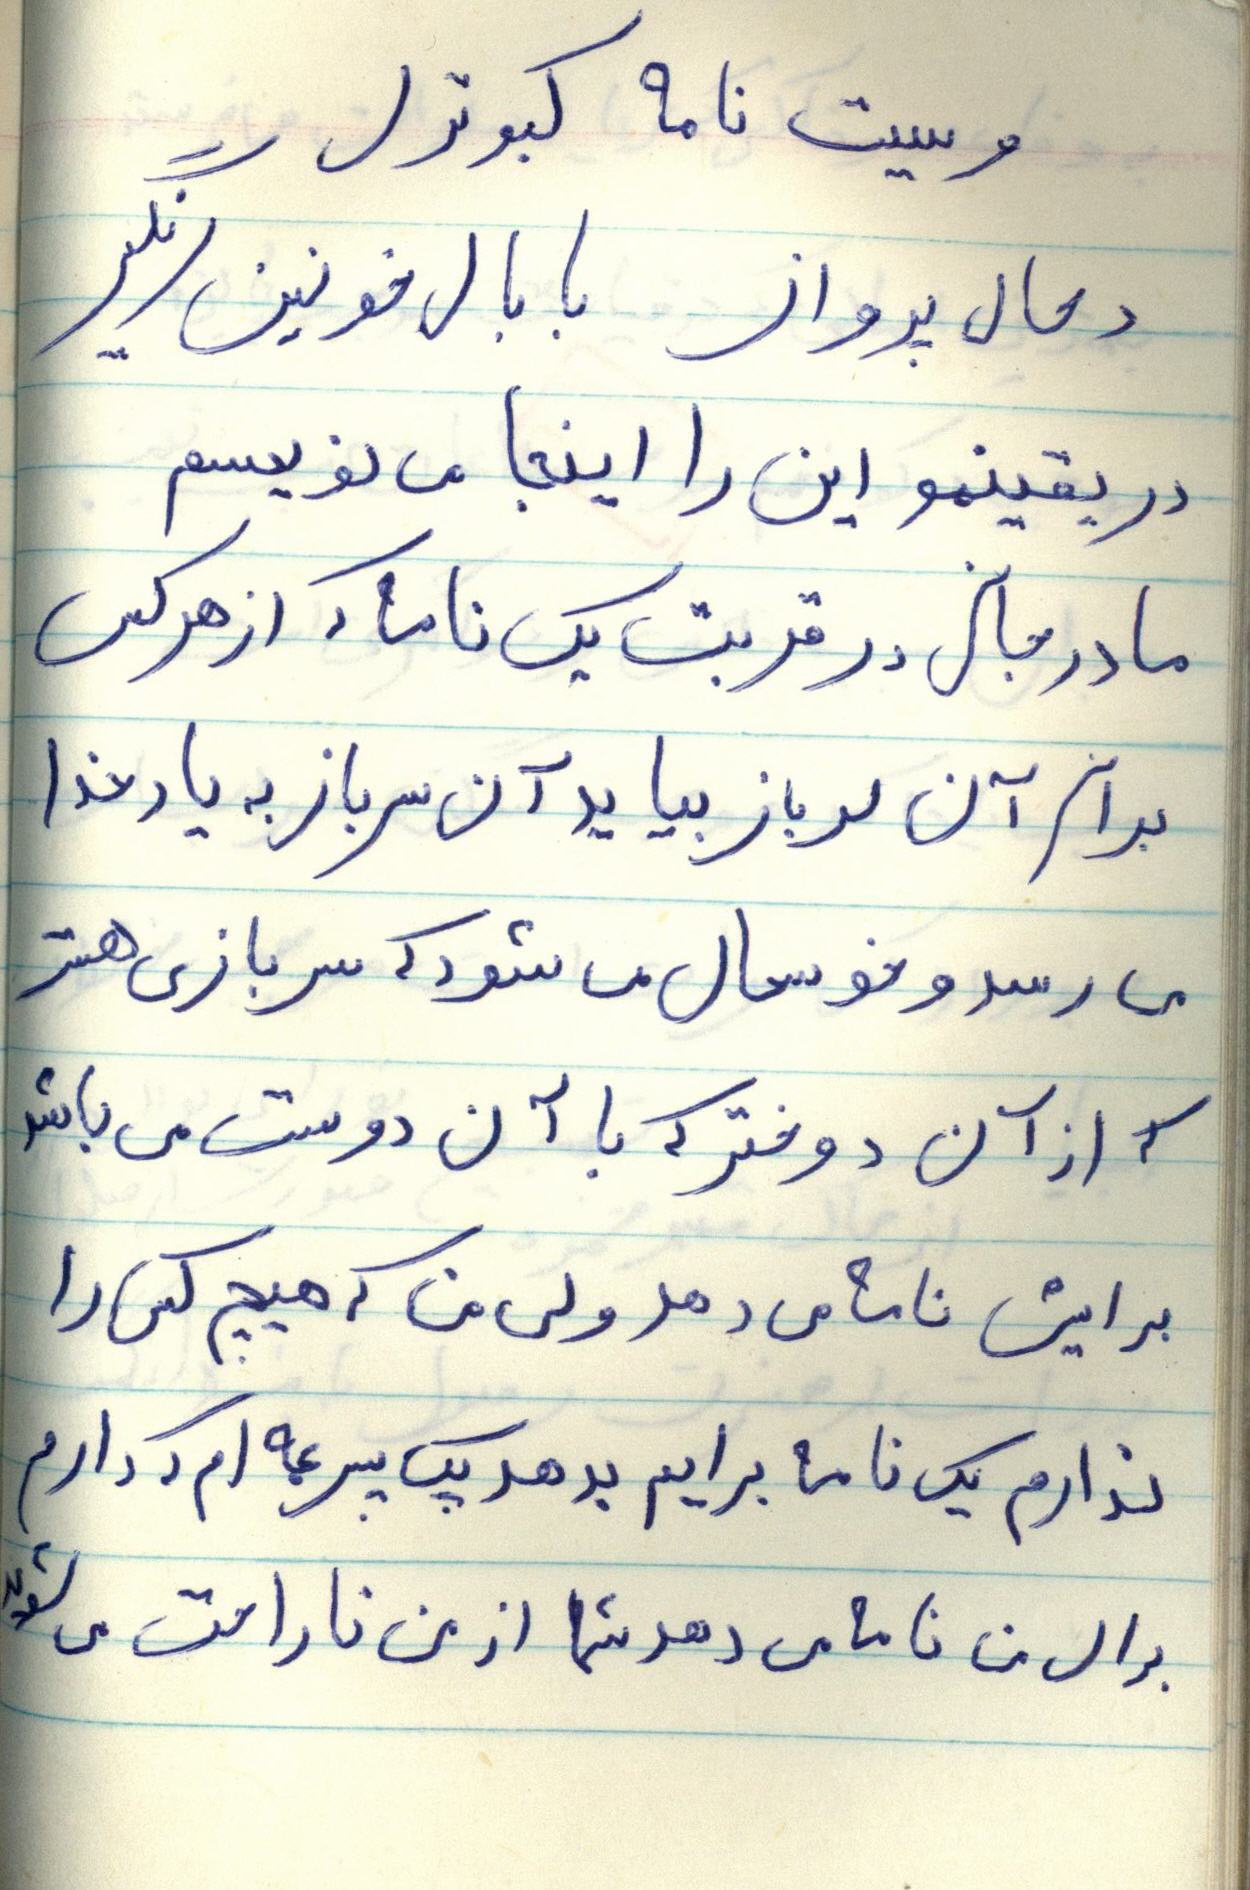 وسیت نامه کبوترل
درحال پرواز با بال خونین
در یقینمو این را اینجا می نویسم
مادر جان در قربت یک نامه که از هر کس
برا آن سرباز بیاید آن سرباز به یاد خدا
می رسد و خوسحال می شود که سربازی هستر
که از آن دوختر که با آن دوست می باشد
برایش نامه می دهد ولی من که هیچ کس را
ندارم یک نامه برایم بدهد یک پسر عمه ام که دارم
برای من نامه می دهد شما از من ناراحت می شوید